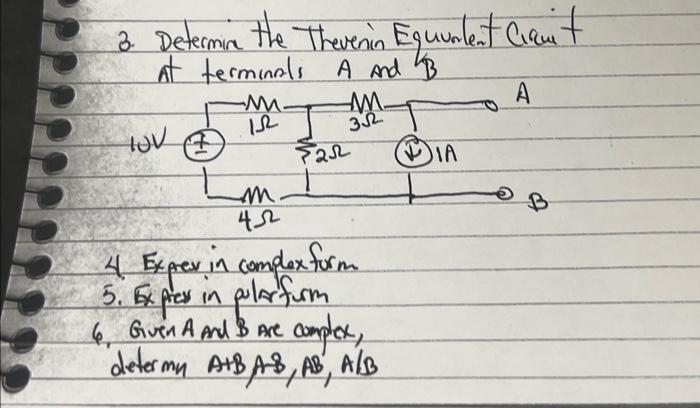 3. Determin the Thevenin Equivalent Circuit
At terminals A and B
A
1Ω
3Ω
10V
2Ω
1A
4Ω
B
4. Expres in complex form
5. Expres in polar form
6. Given A and B are complex,
determin A+B, A-B, AB, A/B